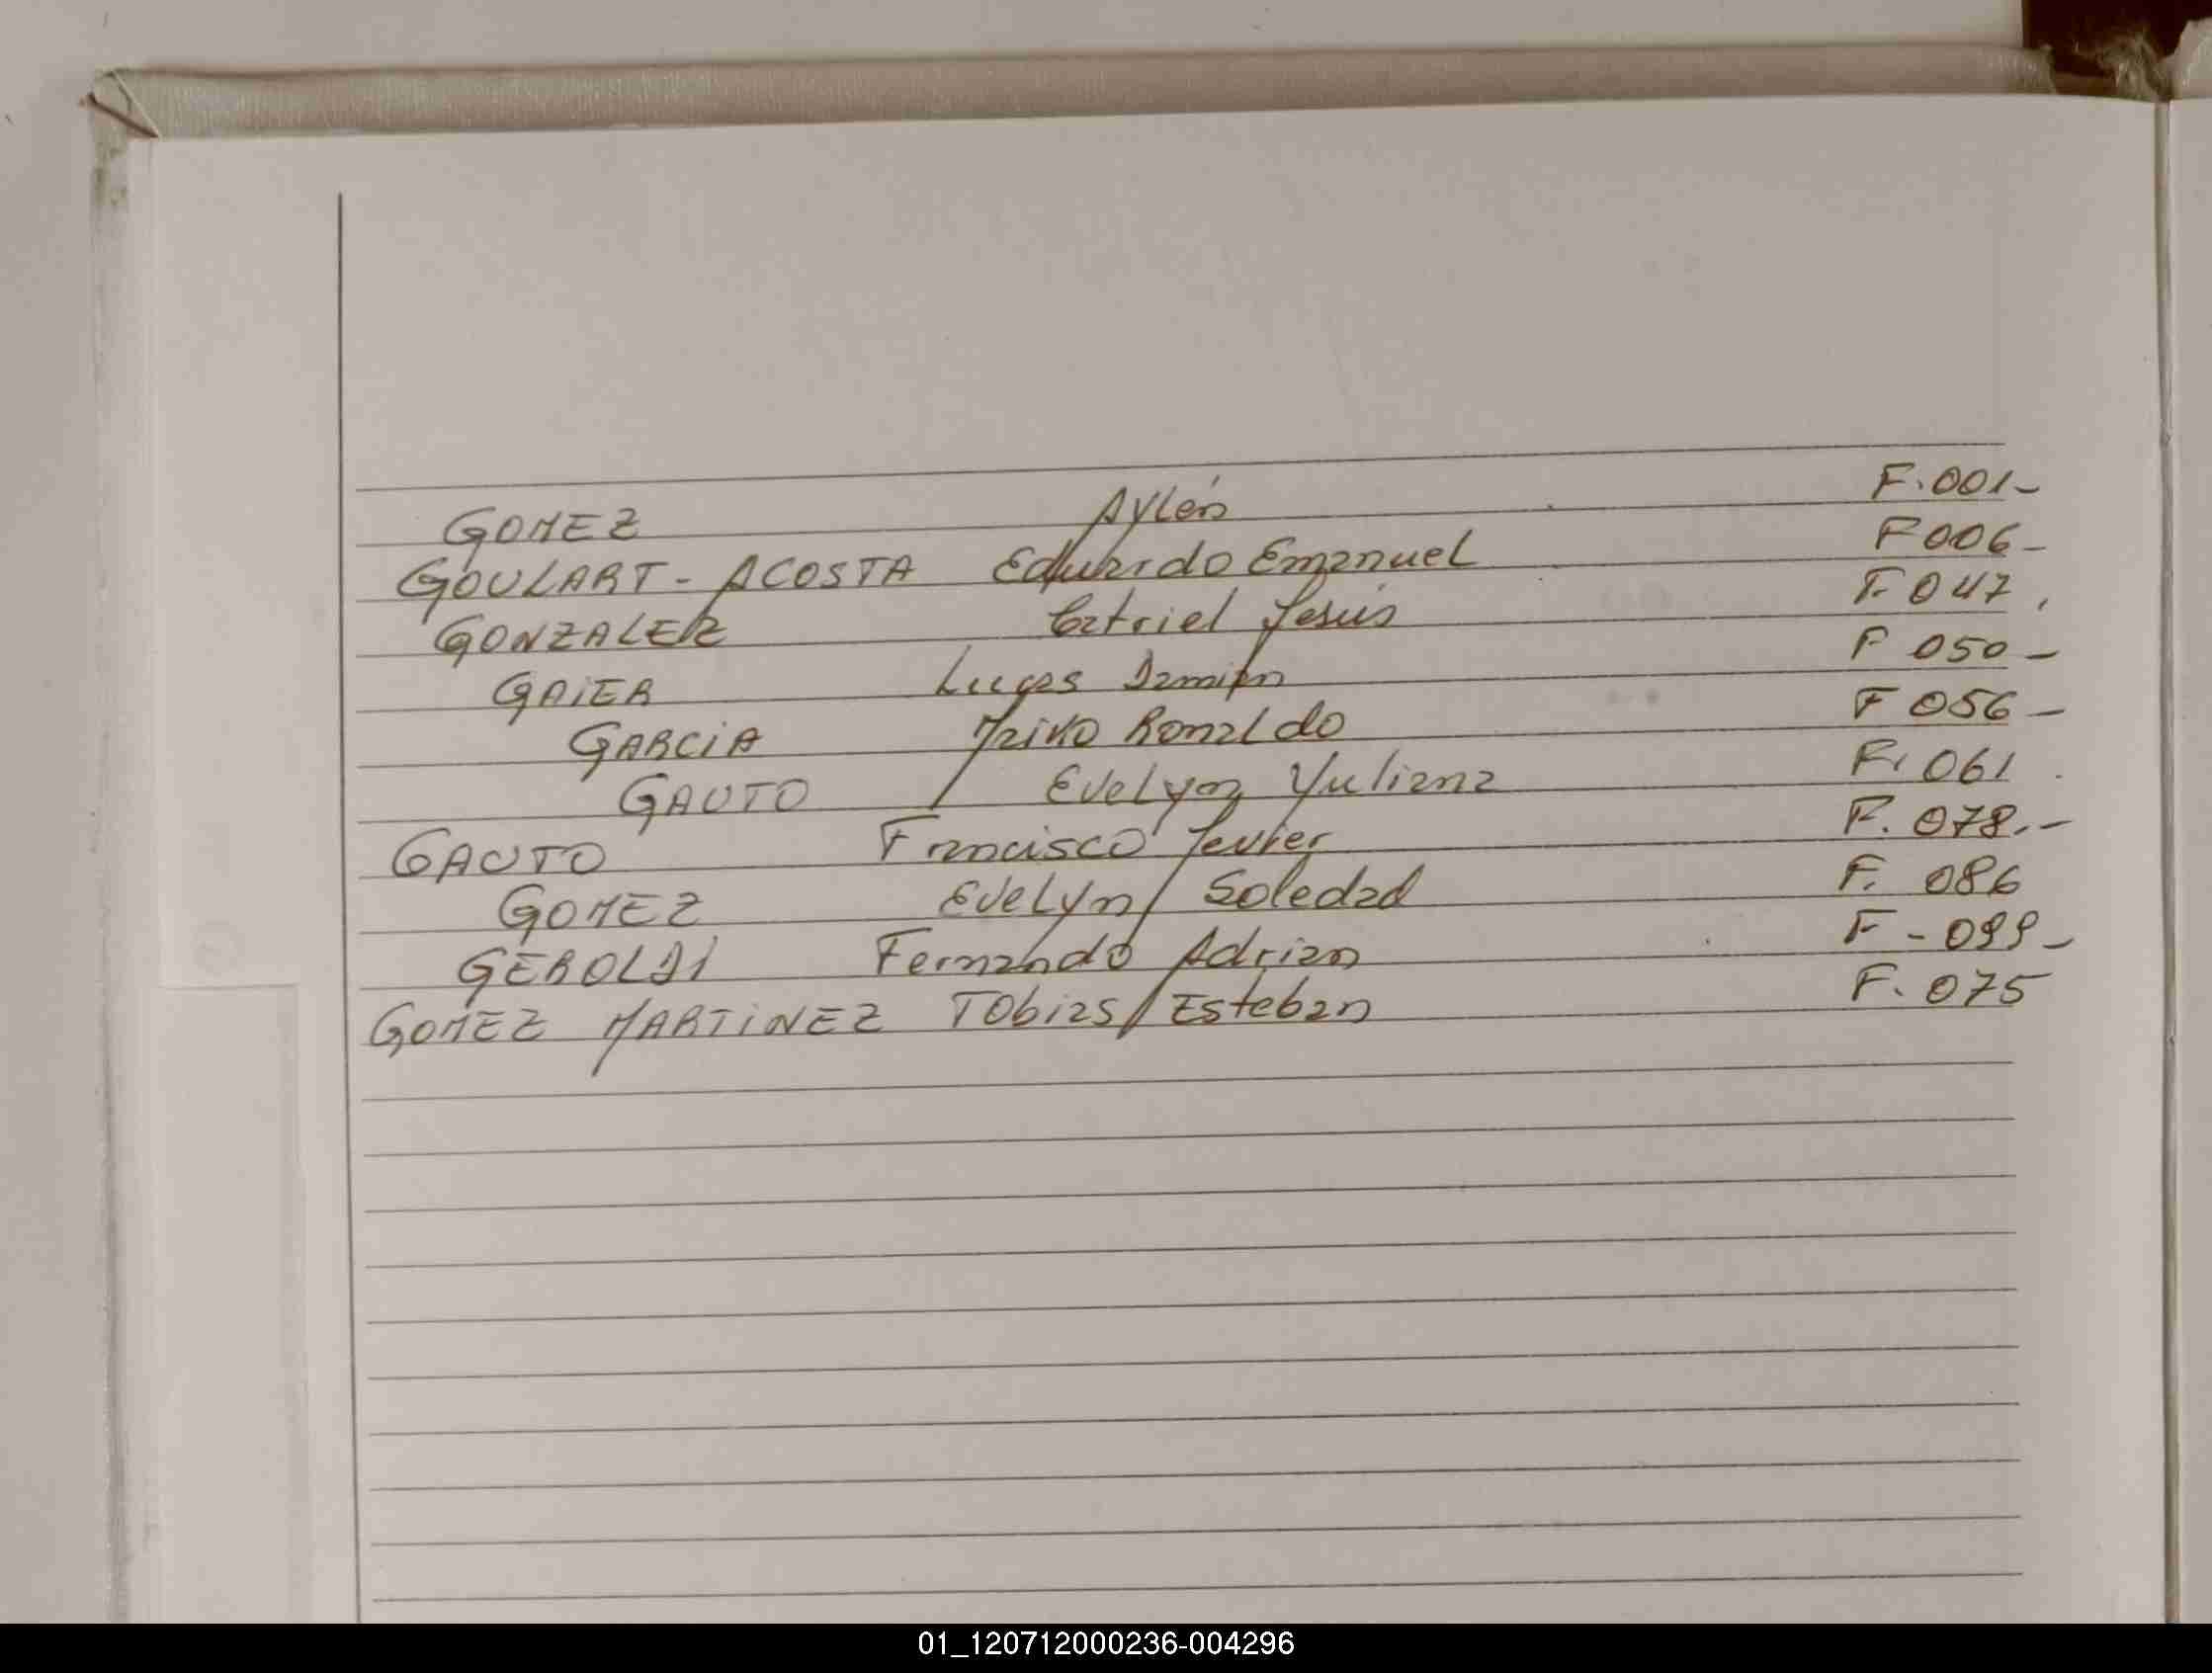 GOMEZ Aylén F.001-
GOULART - ACOSTA Eduardo Emanuel F006-
GONZALEZ Catriel Jesús F-047.
GAIER Lucas Damián F 050-
GARCIA Maiko Ronaldo F 056-
GAUTO Evelyn Yuliana F. 061
GAUTO Francisco Javier F. 078.-
GOMEZ Evelyn Soledad F. 086
GEROLDI Fernando Adrian F - 099-
GOMEZ MARTINEZ Tobias Esteban F. 075
01_120712000236-004296